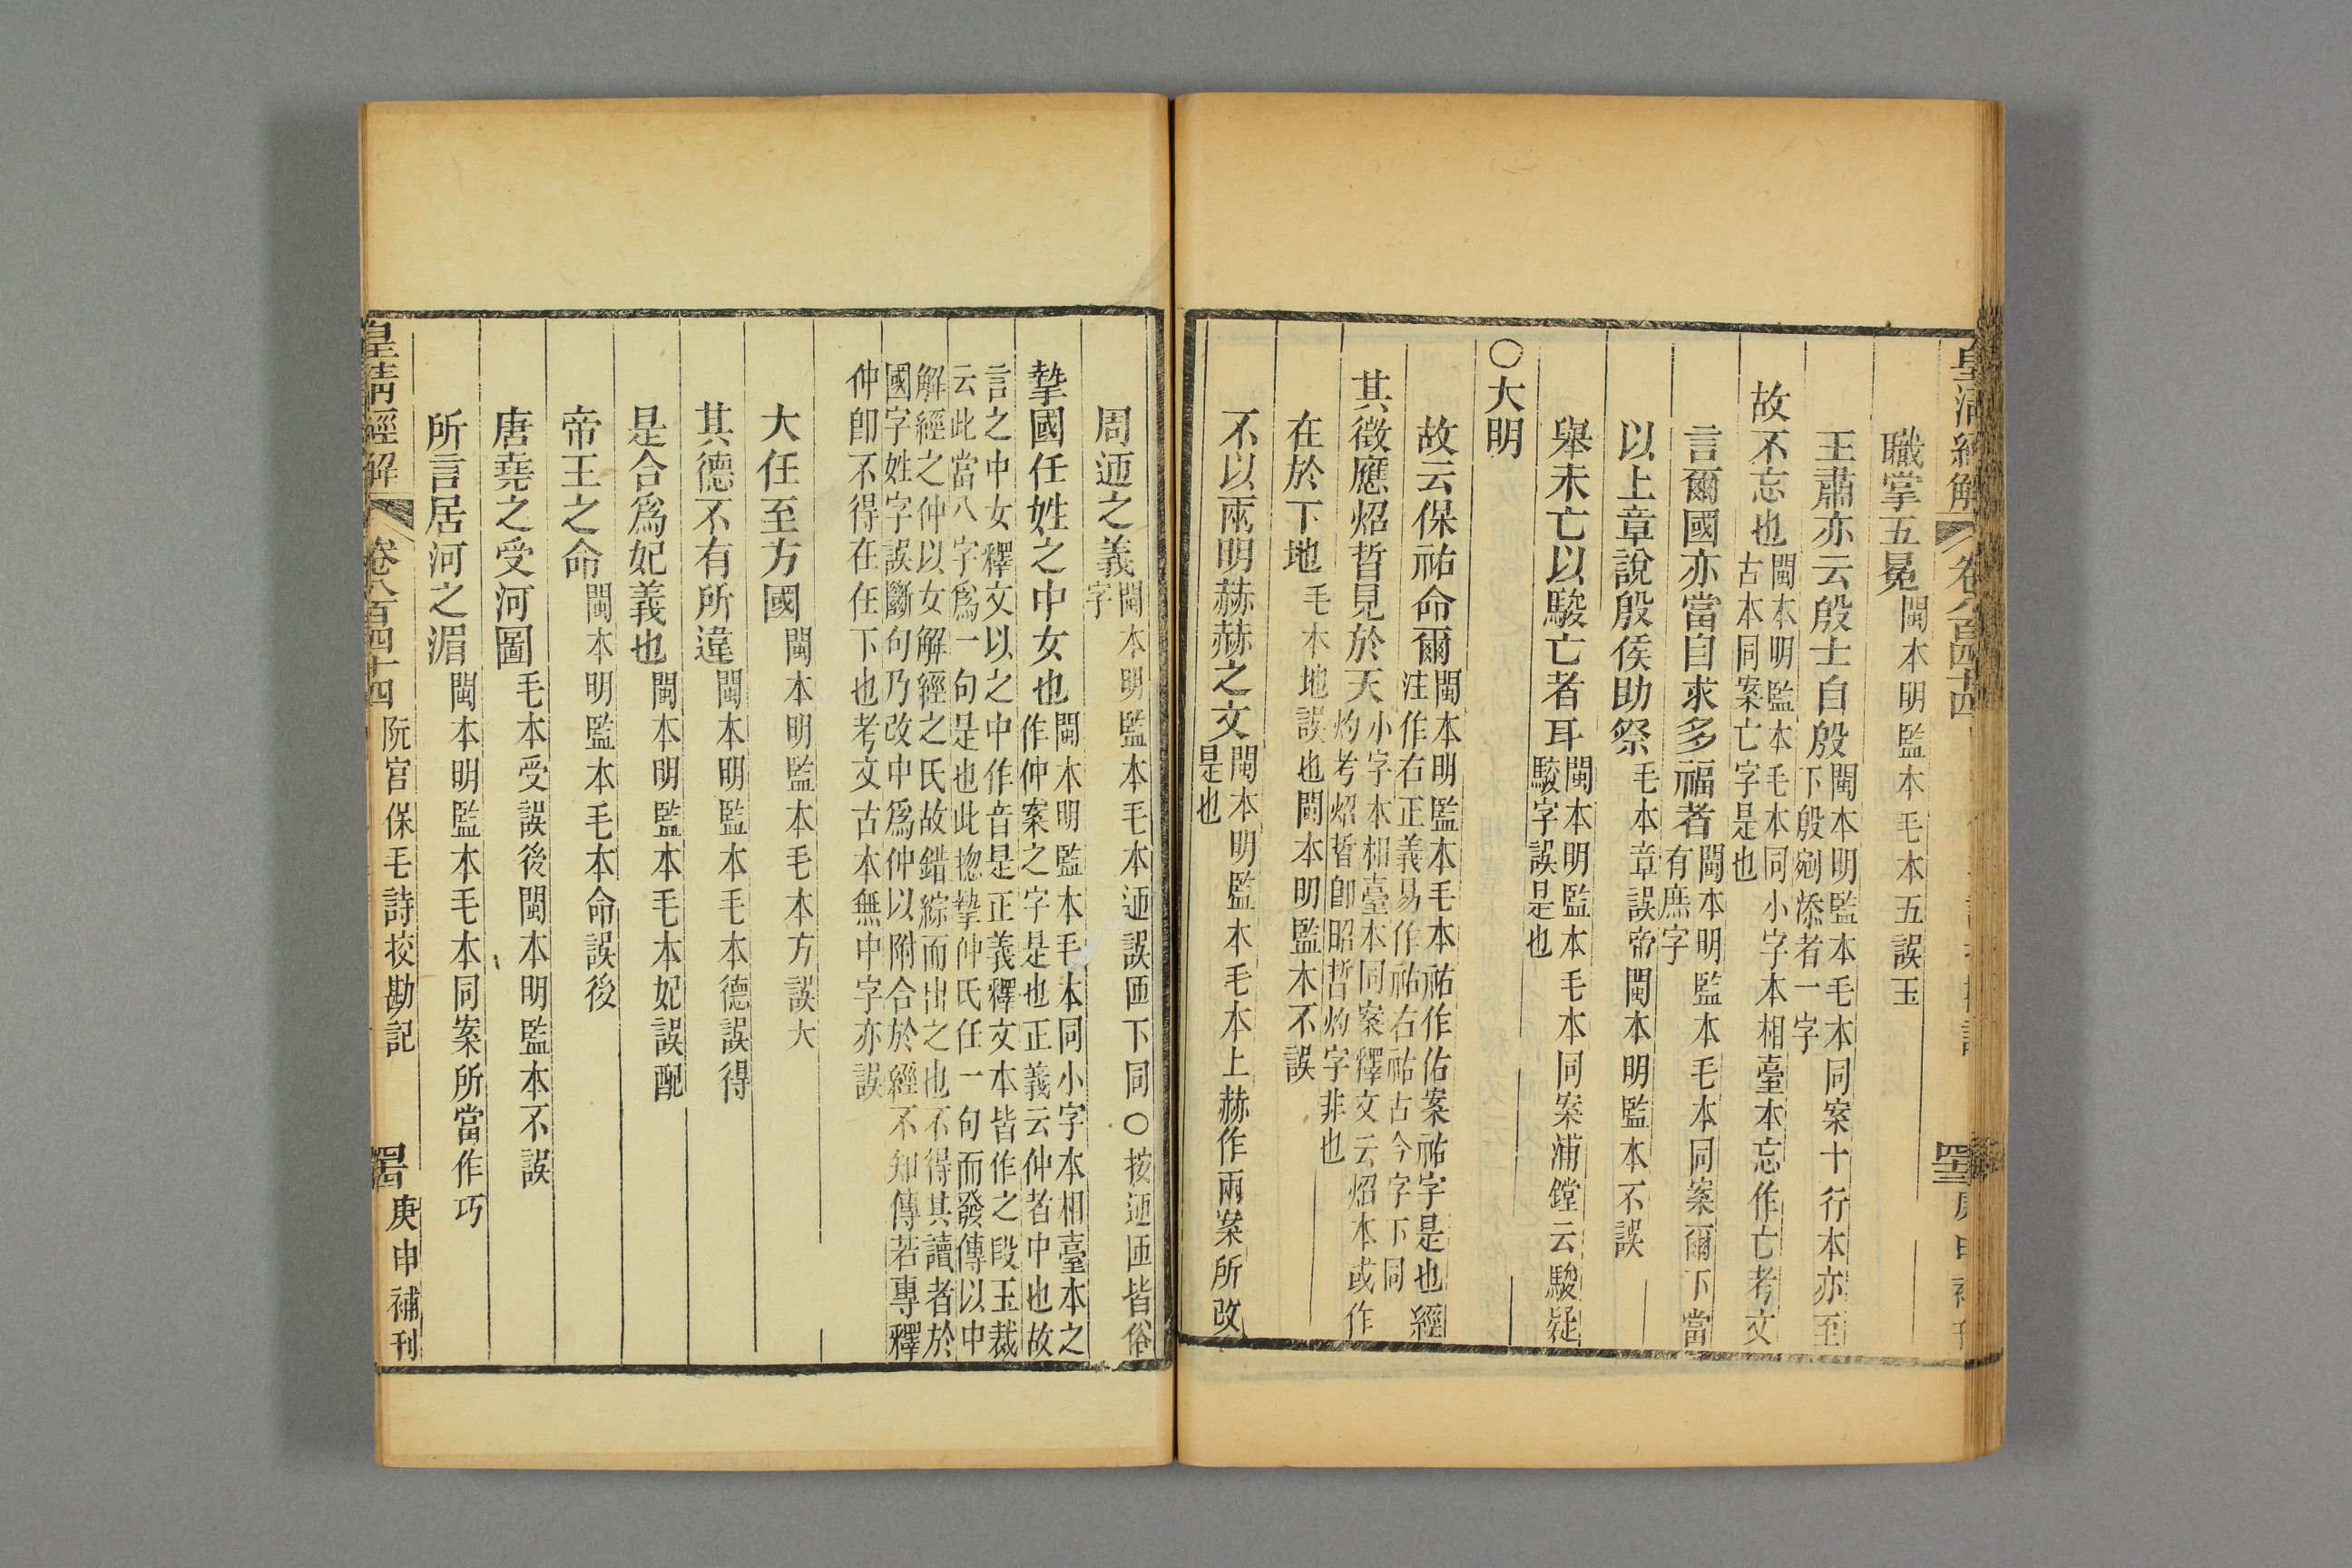 職掌五冕閩本明監本毛本五誤玉
王肅亦云殷士自殷閩本明監本毛本同案十行本亦至
下殷剜添者一字
故不忘也閩本明監本毛本同小字本相臺本忘作亡考文
古本同案亡字是也
言爾國亦當自求多福者閩本明監本毛本同案爾下當
有庶字
以上章說殷侯助祭毛本章誤帝閩本明監本不誤
舉未亡以駿亡者耳閩本明監本毛本同案浦鏜云駿疑
駮字誤是也
○大明
故云保祐命爾閩本明監本毛本祐作佑案祐字是也經
注作右正義易作祐右祐古今字下同
其徵應炤晢見於天小字本相臺本同案釋文云炤本或作
灼考炤晢卽昭晢灼字非也
在於下地毛本地誤也閩本明監本不誤
不以兩明赫赫之文閩本明監本毛本上赫作兩案所改
是也
周迊之義閩本明監本毛本迊誤匝下同○按迊匝皆俗
字
摯國任姓之中女也閩本明監本毛本同小字本相臺本之
作仲案之字是也正義云仲者中也故
言之中女釋文以之中作音是正義釋文本皆作之段玉裁
云此當八字爲一句是也此摠摯仲氏任一句而發傳以中
解經之仲以女解經之氏故錯綜而出之也不得其讀者於
國字姓字誤斷句乃改中爲仲以附合於經不知傳若專釋
仲卽不得在任下也考文古本無中字亦誤
大任至方國閩本明監本毛本方誤大
其德不有所違閩本明監本毛本德誤得
是合爲妃義也閩本明監本毛本妃誤配
帝王之命閩本明監本毛本命誤後
唐堯之受河圖毛本受誤後閩本明監本不誤
所言居河之湄閩本明監本毛本同案所當作巧
皇清經解 卷八百四十四 阮宮保毛詩挍勘記 庚申補刊